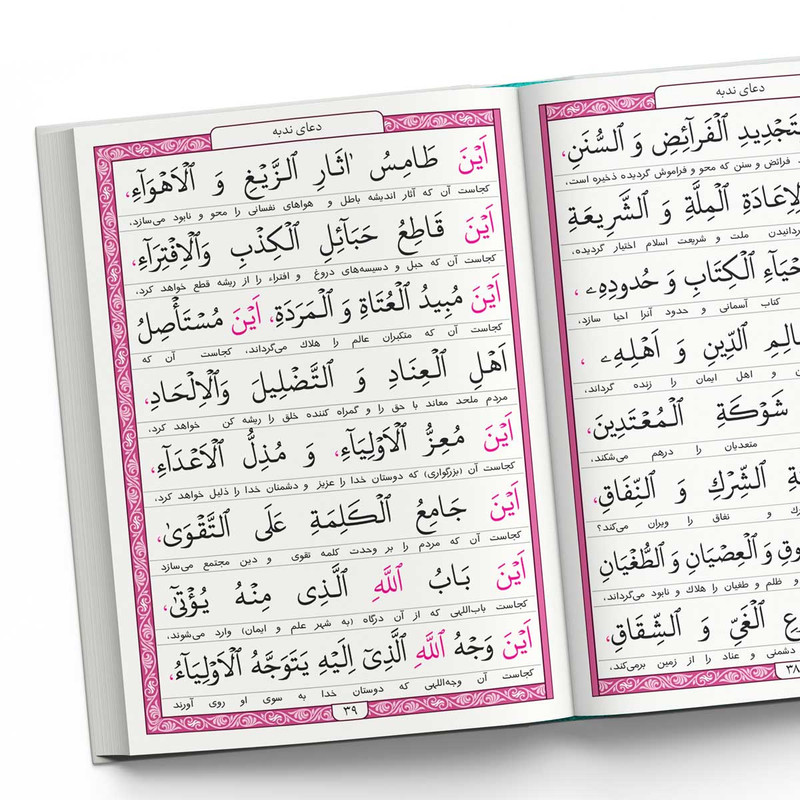 دعای ندبه
الْفَرآئِضِ وَ السُّنَنِ،
فرائض و سنن که محو و فراموش گردیده ذخیره است،
الْمِلَّةِ وَ الشَّریعَةِ
ملت و شریعت اسلام اختیار گردیده،
الْکِتَابِ وَ حُدُودِهِ،
کتاب آسمانی و حدود آنرا احیا سازد،
الدِّینِ وَ اَهْلِهِ،
و اهل ایمان را زنده گرداند،
شَوْکَةِ الْمُعْتَدِینَ،
متعدیان را درهم می‌شکند،
الشِّرْکِ وَ النِّفَاقِ،
و نفاق را ویران می‌کند؟
وَ الْعِصْیَانِ وَ الطُّغْیَانِ
و ظلم و طغیان را هلاك و نابود می‌گرداند،
الْغَیِّ وَ الشِّقَاقِ،
دشمنی و عناد را از زمین برمی‌کند،
۳۸
دعای ندبه
اَیْنَ طَامِسُ اٰثَارِ الزَّیْغِ وَ الْاَهْوَآءِ،
کجاست آن که آثار اندیشه باطل و هواهای نفسانی را محو و نابود می‌سازد،
اَیْنَ قَاطِعُ حَبَآئِلِ الْکِذْبِ وَالْاِفْتِرَآءِ،
کجاست آن که حبل و دسیسه‌های دروغ و افتراء را از ریشه قطع خواهد کرد،
اَیْنَ مُبِیدُ الْعُتَاةِ وَ الْمَرَدَةِ، اَیْنَ مُسْتَأْصِلُ
کجاست آن که متکبران عالم را هلاك می‌گرداند، کجاست آن که
اَهْلِ الْعِنَادِ وَ التَّضْلِیلَ وَالْاِلْحَادِ،
مردم ملحد معاند با حق را و گمراه کننده خلق را ریشه کن خواهد کرد،
اَیْنَ مُعِزُّ الْاَوْلِیَآءِ، وَ مُذِلُّ الْاَعْدَآءِ،
کجاست آن (بزرگواری) که دوستان خدا را عزیز و دشمنان خدا را ذلیل خواهد کرد،
اَیْنَ جَامِعُ الْکَلِمَةِ عَلَی التَّقْوَیٰ،
کجاست آن که مردم را بر وحدت کلمه تقوی و دین مجتمع می‌سازد
اَیْنَ بَابُ اللّٰهِ الَّذِی مِنْهُ یُؤْتیٰ،
کجاست باب‌اللهی که از آن درگاه (به شهر علم و ایمان) وارد می‌شوند،
اَیْنَ وَجْهُ اللّٰهِ الَّذِیٓ اِلَیْهِ یَتَوَجَّهُ الْاَوْلِیَآءُ،
کجاست آن وجه‌اللهی که دوستان خدا به سوی او روی آورند
۳۹